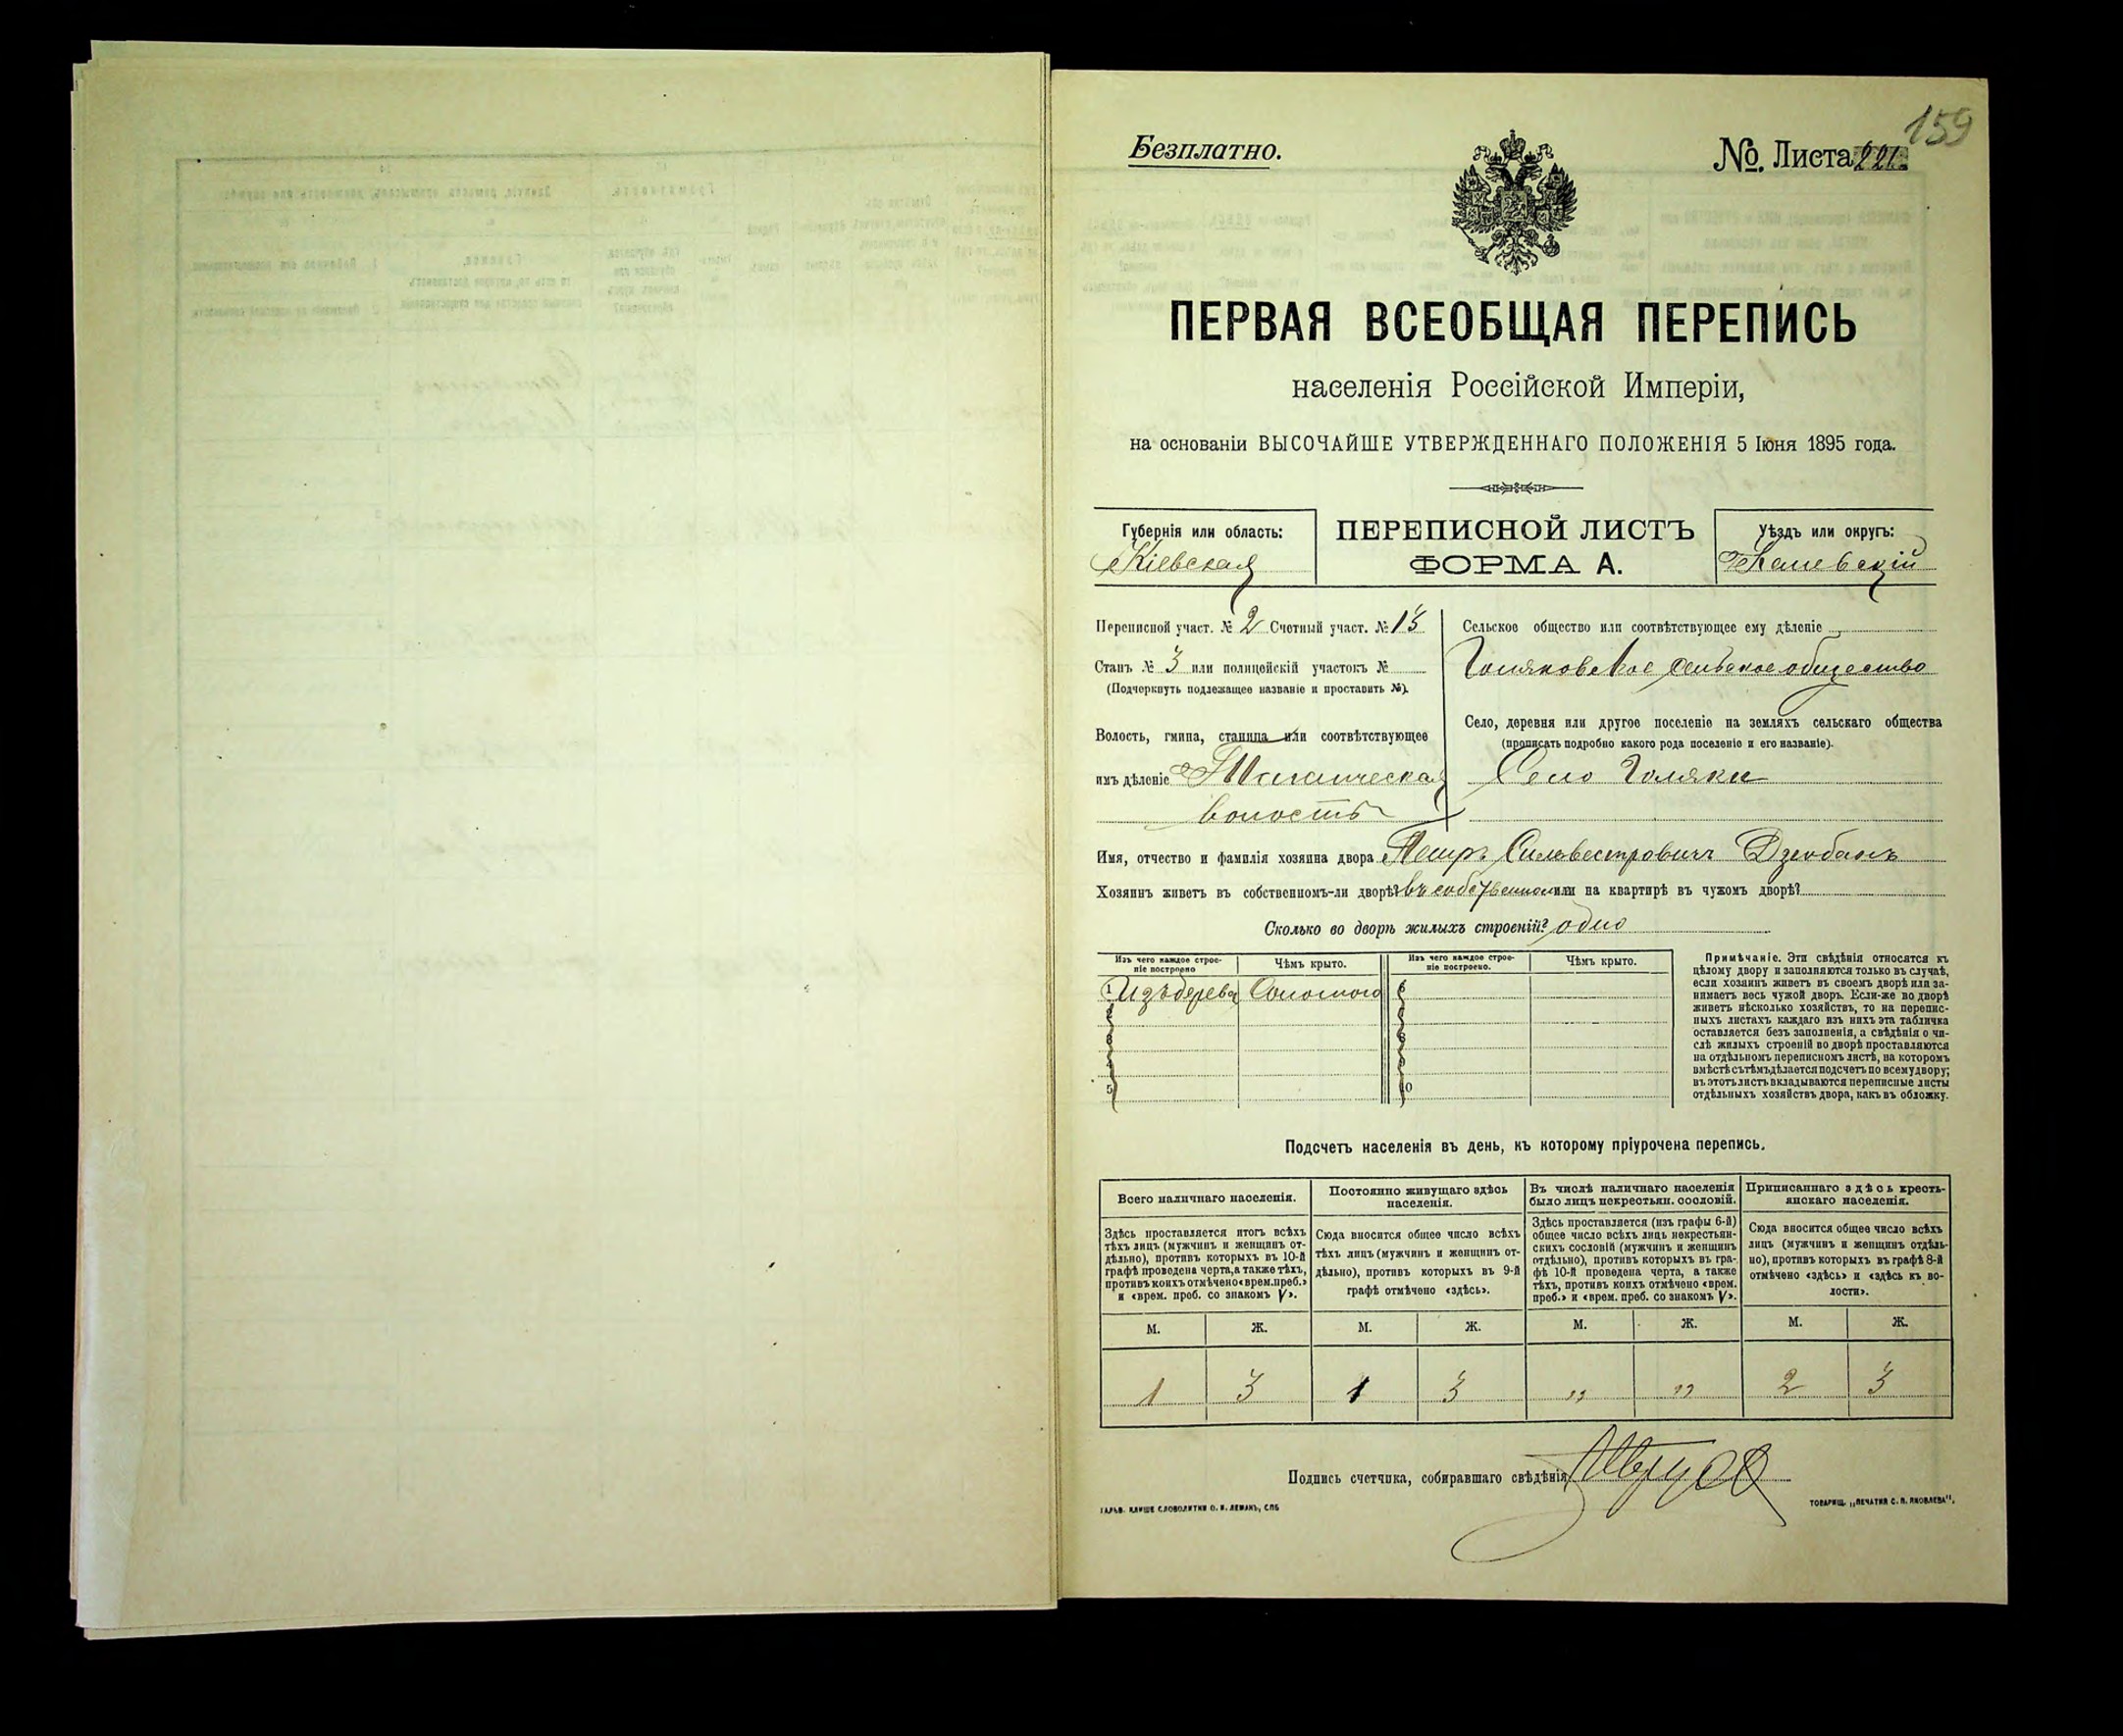 159
Безплатно.
№ Листа 221.
ПЕРВАЯ ВСЕОБЩАЯ ПЕРЕПИСЬ
населенія Россійской Имперіи,
на основаніи ВЫСОЧАЙШЕ УТВЕРЖДЕННАГО ПОЛОЖЕНІЯ 5 Іюня 1895 года.
Губернія или область:
Кіевская
ПЕРЕПИСНОЙ ЛИСТЪ
ФОРМА А.
Уѣздъ или округъ:
Каневскій
Переписной участ. № 2 Счетный участ. № 13
Станъ № 3 или полицейскій участокъ №
(Подчеркнуть подлежащее названіе и проставить №).
Волость, гмина, станица или соотвѣтствующее
имъ дѣленіе
волость
Сельское общество или соотвѣтствующее ему дѣленіе
Голяковское сельское общество
Село, деревня или другое поселеніе на земляхъ сельскаго общества
(прописать подробно какого рода поселеніе и его названіе).
Село Голяки
Имя, отчество и фамилія хозяина двора Петръ Сильвестровичъ
Хозяинъ живетъ въ собственномъ-ли дворѣ? въ собственном или на квартирѣ въ чужомъ дворѣ?
Сколько во дворѣ жилыхъ строеній? одно
Изъ чего каждое строе-
ніе построено
Чѣмъ крыто.
Изъ чего каждое строе-
ніе построено.
Чѣмъ крыто.
1 Изъ дерева Соломою 6
2
3 8
4 9
5 10
Примѣчаніе. Эти свѣдѣнія относятся къ
цѣлому двору и заполняются только въ случаѣ,
если хозяинъ живетъ въ своемъ дворѣ или за-
нимаетъ весь чужой дворъ. Если-же во дворѣ
живетъ нѣсколько хозяйствъ, то на перепис-
ныхъ листахъ каждаго изъ нихъ эта табличка
оставляется безъ заполненія, а свѣдѣнія о чи-
слѣ жилыхъ строеній во дворѣ проставляются
на отдѣльномъ переписномъ листѣ, на которомъ
вмѣстѣ съ тѣмъ дѣлается подсчетъ по всему двору;
въ этотъ листъ вкладываются переписные листы
отдѣльныхъ хозяйствъ двора, какъ въ обложку.
Подсчетъ населенія въ день, къ которому пріурочена перепись.
Всего наличнаго населенія.
Здѣсь проставляется итогъ всѣхъ
тѣхъ лицъ (мужчинъ и женщинъ от-
дѣльно), противъ которыхъ въ 10-й
графѣ проведена черта, а также тѣхъ,
противъ коихъ отмѣчено «врем. преб.»
и «врем. преб. со знакомъ V».
Постоянно живущаго здѣсь
населенія.
Сюда вносится общее число всѣхъ
тѣхъ лицъ (мужчинъ и женщинъ от-
дѣльно), противъ которыхъ въ 9-й
графѣ отмѣчено «здѣсь».
Въ числѣ наличнаго населенія
было лицъ некрестьян. сословій.
Здѣсь проставляется (изъ графы 6-й)
общее число всѣхъ лицъ некрестьян-
скихъ сословій (мужчинъ и женщинъ
отдѣльно), противъ которыхъ въ гра-
фѣ 10-й проведена черта, а также
тѣхъ, противъ коихъ отмѣчено «врем.
преб.» и «врем. преб. со знакомъ V».
Приписаннаго здѣсь кресть-
янскаго населенія.
Сюда вносится общее число всѣхъ
лицъ (мужчинъ и женщинъ отдѣль-
но), противъ которыхъ въ графѣ 8-й
отмѣчено «здѣсь» и «здѣсь къ во-
лости».
М. Ж. М. Ж. М. Ж. М. Ж.
1 3 1 3 " " 2 3
Подпись счетчика, собиравшаго свѣдѣнія
ГАЛЬВ. КЛИШЕ СЛОВОЛИТНИ О. И. ЛЕМАНЪ, СПБ
ТОВАРИЩ. „ПЕЧАТНЯ С. П. ЯКОВЛЕВА".